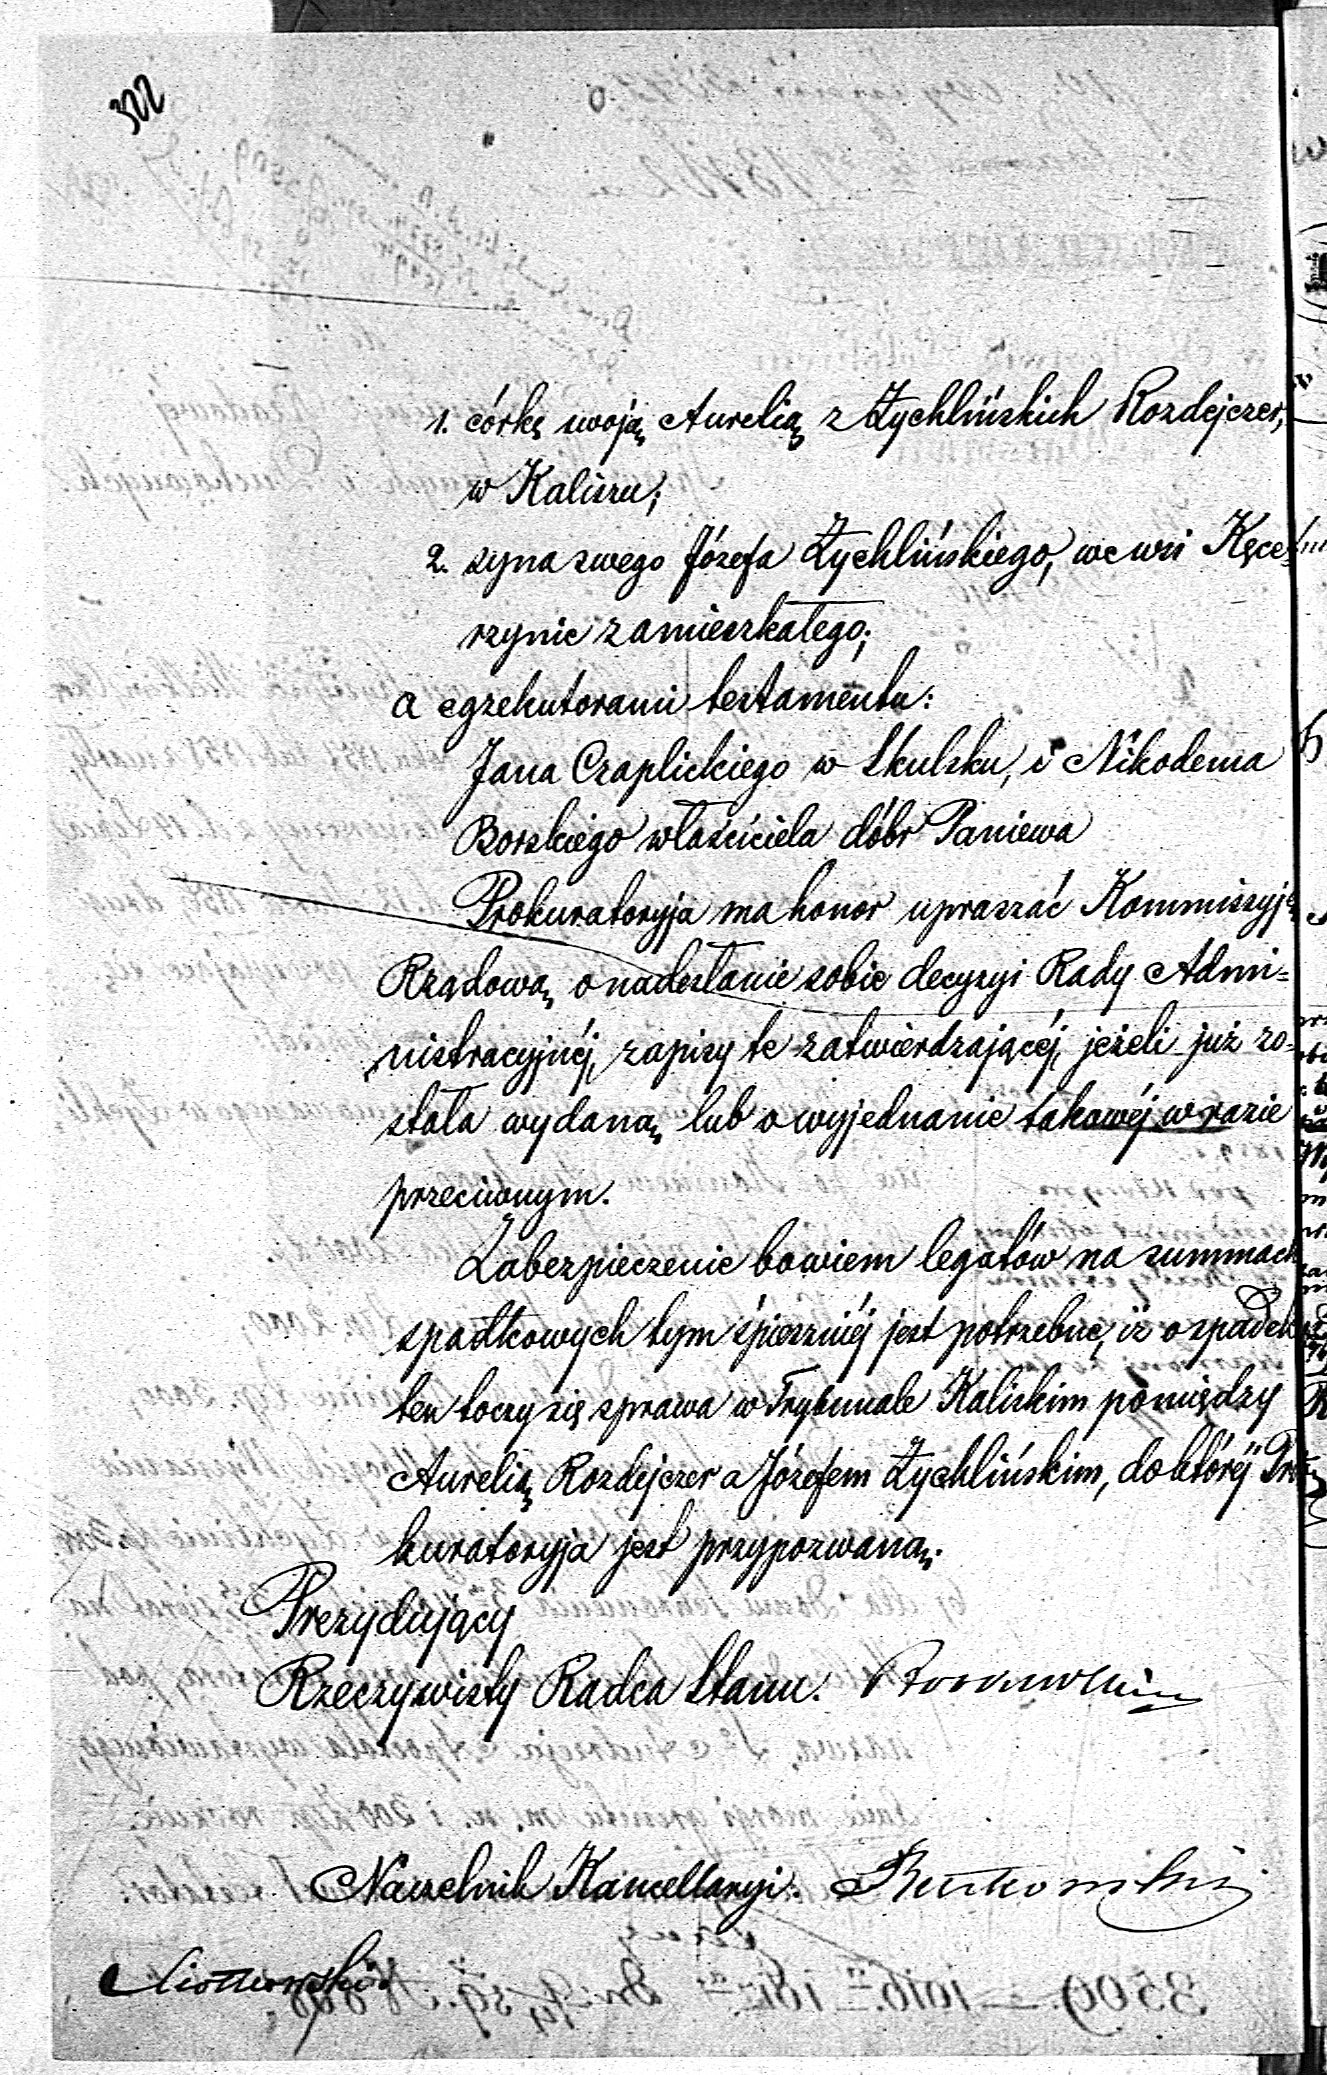 322
1. córkę swoją Aurelią z Żychlińskich Rozdejczer,
w Kaliszu;
2. syna swego Józefa Żychlińskiego, we wsi Kęce-
rzynie zamieszkałego;
a egzekutorami testamentu:
Jana Czaplickiego w Skulsku, i Nikodema
Borskiego właściciela dóbr Paniewa
Prokuratoryja ma honor upraszać Kommissyję
Rządową o nadesłanie sobie decyzyi Rady Admi=
nistracyjnéj, zapisy te zatwierdzającéj, jeżeli już zo-
stała wydaną, lub o wyjednanie takowéj w razie
przeciwnym.
Zabezpieczenie bowiem legatów na summach
spadkowych tym śpieszniéj jest potrzebne, iż o spadek
ten toczy się sprawa w Trybunale Kaliskim pomiędzy
Aurelią Rozdejczer a Józefem Żychlińskim, do któréj Pro
kuratoryja jest przypozwaną.
Prezydujący
Rzeczywisty Radca Stanu.
Naczelnik Kancellaryi.